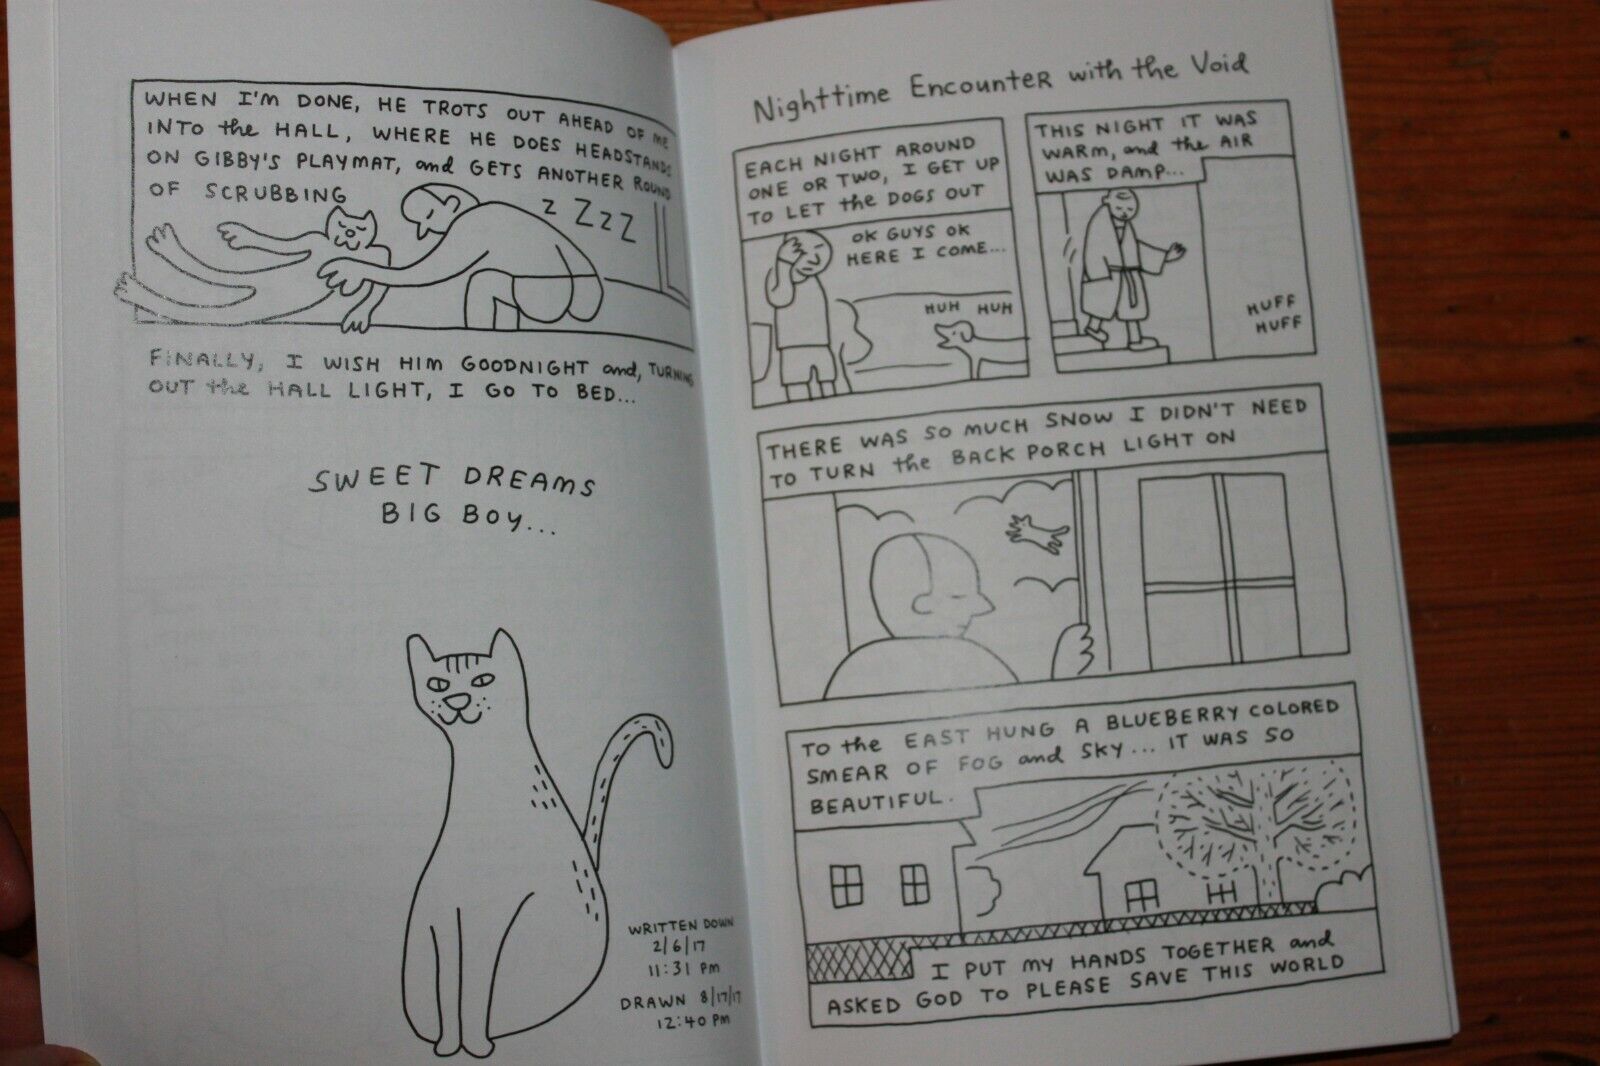 WHEN I'M DONE, HE TROTS OUT AHEAD OF ME
INTO the HALL, WHERE HE DOES HEADSTANDS
ON GIBBY'S PLAYMAT, and GETS ANOTHER ROUND
OF SCRUBBING
Z ZZZ
FINALLY, I WISH HIM GOODNIGHT and, TURNING
OUT the HALL LIGHT, I GO TO BED...
SWEET DREAMS
BIG BOY...
WRITTEN DOWN
2/6/17
11:31 PM
DRAWN 8/17/17
12:40 PM
Nighttime Encounter with the Void
EACH NIGHT AROUND
ONE OR TWO, I GET UP
TO LET the DOGS OUT
OK GUYS OK
HERE I COME...
HUH HUH
THIS NIGHT IT WAS
WARM, and the AIR
WAS DAMP...
HUFF
HUFF
THERE WAS SO MUCH SNOW I DIDN'T NEED
TO TURN the BACK PORCH LIGHT ON
TO the EAST HUNG A BLUEBERRY COLORED
SMEAR OF FOG and SKY... IT WAS SO
BEAUTIFUL.
I PUT MY HANDS TOGETHER and
ASKED GOD TO PLEASE SAVE THIS WORLD